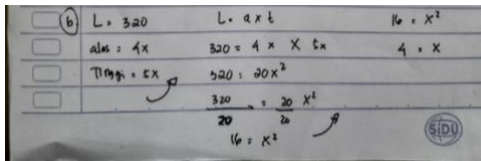 b L = 320
alas = 4x
Tinggi = 5x
L = a x t
320 = 4x X 5x
320 = 20x²
320/20 = 20/20 x²
16 = x²
16 = x²
4 = x
SIDU